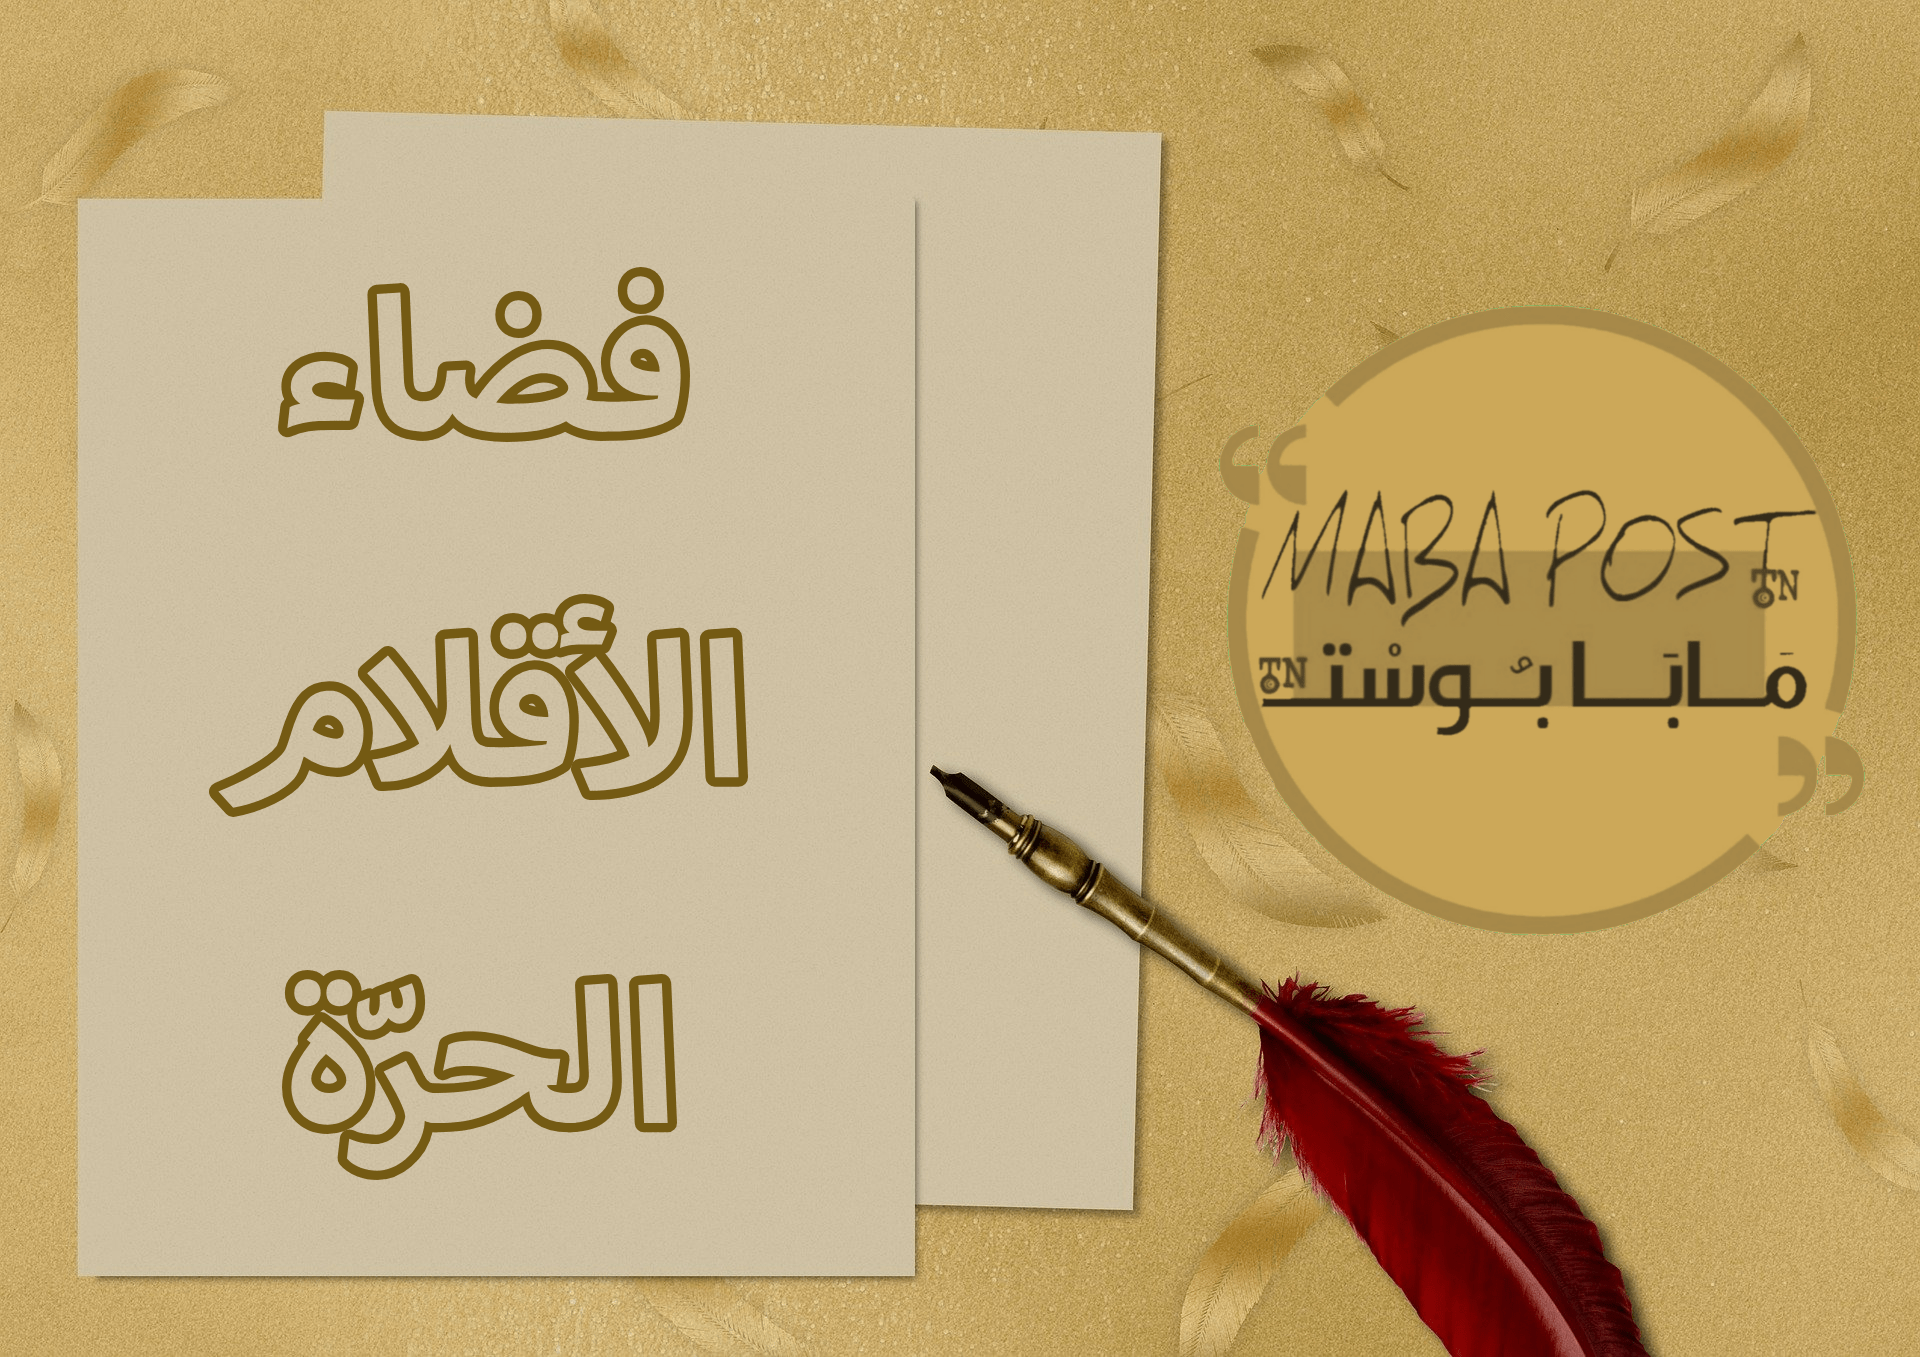 فضاء
الأقلام
الحرّة
MABA POST
TN
مَابَا بُوسْت
TN